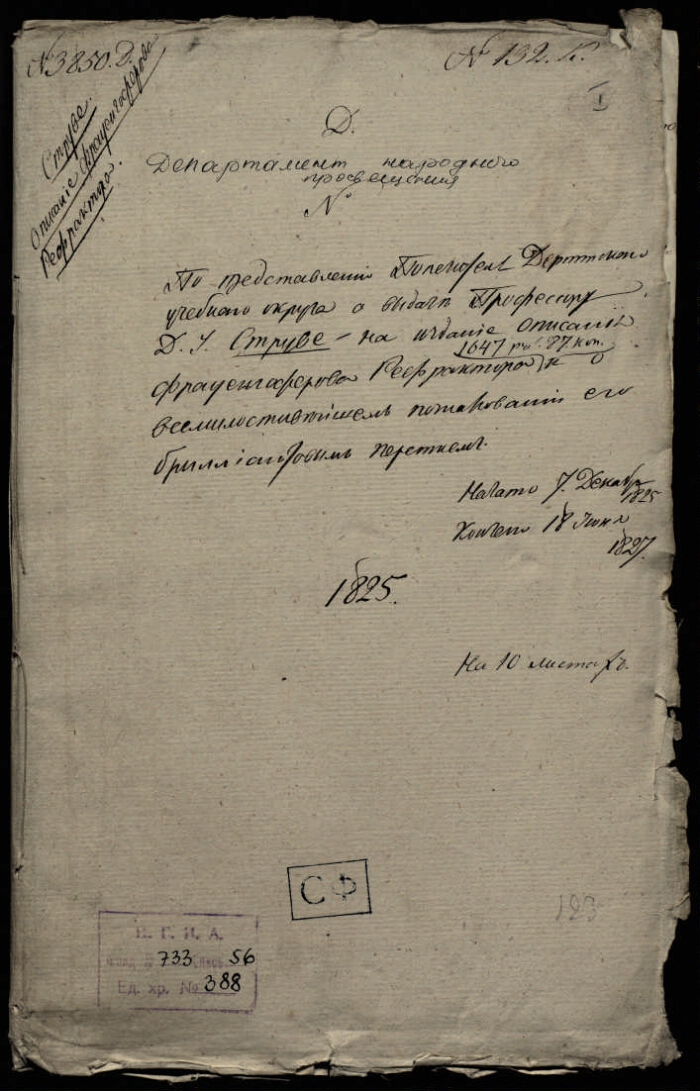 № 3850. Д.
№ 132. К.
I
Струве.
Описаніе Фрауенгоферова
Рефрактора.
Д.
Департамент народного
просвещения
№
По представленію Попечителя Дерптскаго
учебнаго округа о выдачѣ Профессору
Д. У. Струве на изданіе описанія
1647 ру. 77 коп.
Фрауенгоферова Рефрактора и о
всемилостивѣйшемъ пожалованіи его
брилліантовымъ перстнемъ.
Начато 7. Декабр
1825
Кончено 18 Іюня
1827.
1825.
На 10 листахъ.
СФ
123
Ц. Г. И. А.
фонд № 733 опись 56
Ед. хр. № 388